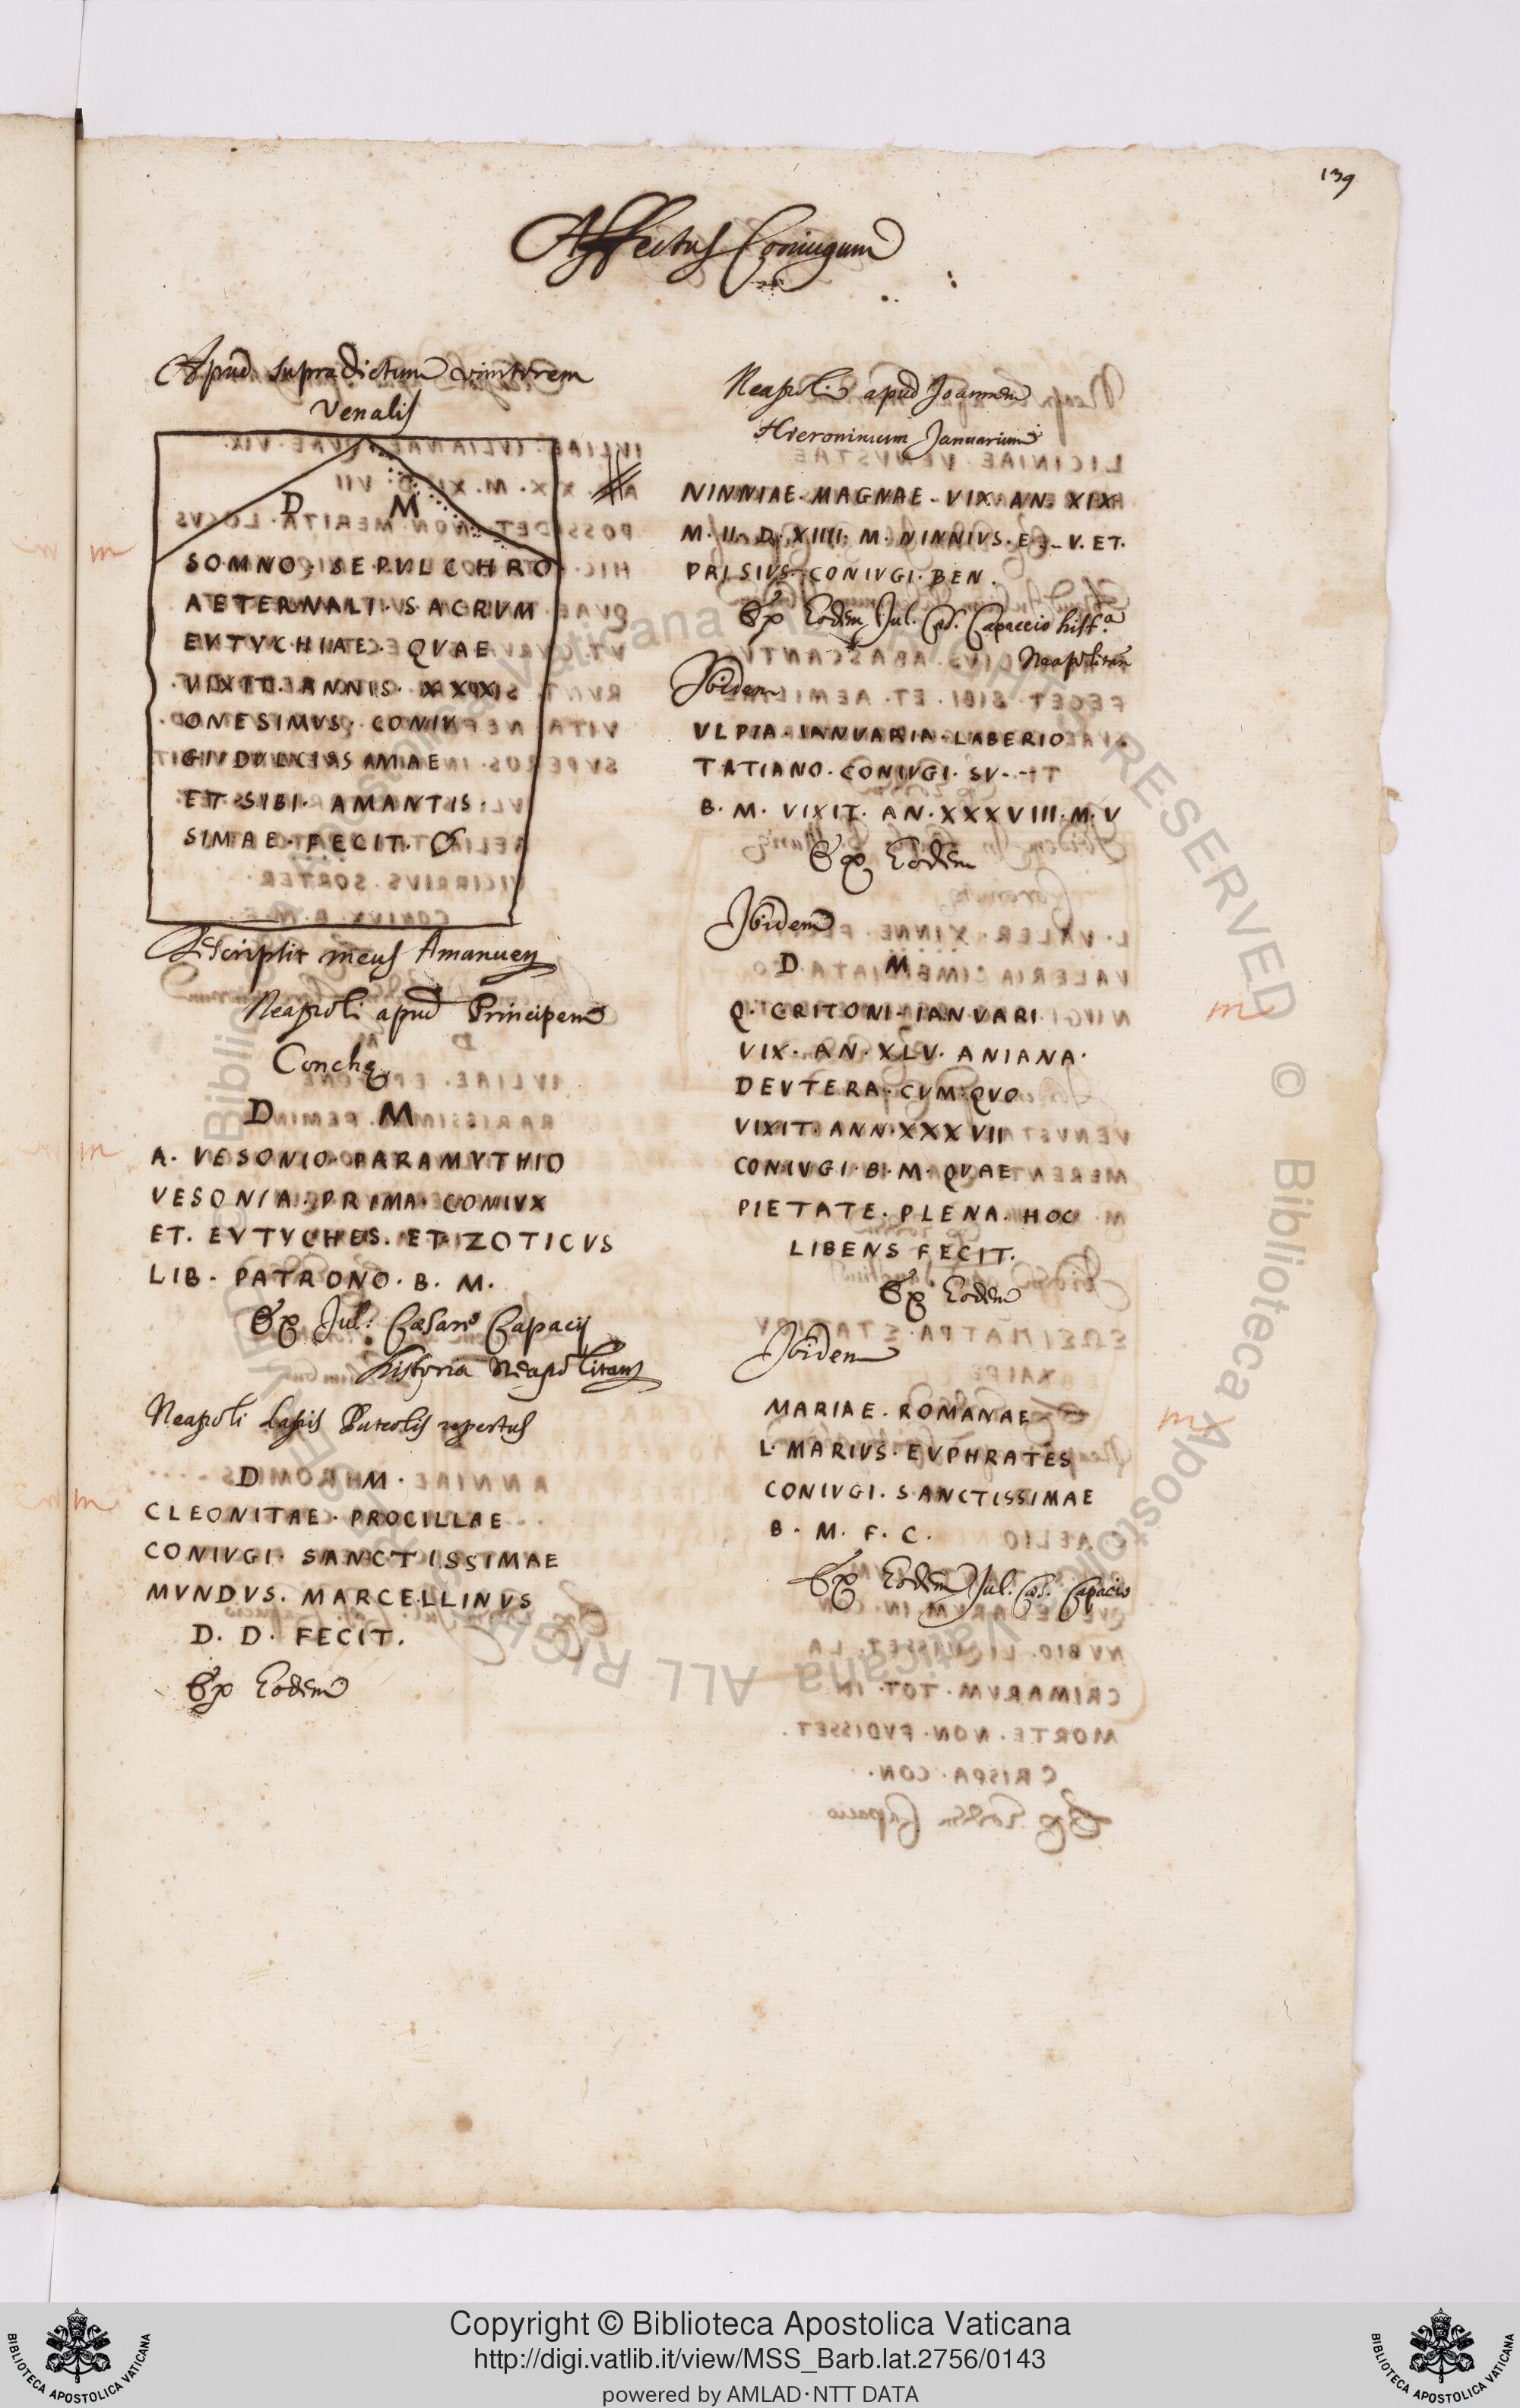 139
Affectus Coniugum
Apud supra dictum vinitorem
venalis
D M
SOMNO. SEPULCHRO
AETERNALI. SACRVM
EVTYCHIAE. QVAE
VIXIT. ANNIS. XXXIX
ONESIMVS. CONIV
GI. DVLCISS AMAE
ET. SIBI. AMANTIS.
SIMAE. FECIT.
Descripsit meus Amanuen
Neapoli apud Principem
Conchę
D M
A. VESONIO. PARAMVTHIO
VESONIA. PRIMA. CONIVX
ET. EVTVCHES. ET. ZOTICVS
LIB. PATRONO. B. M.
Ex Jul: Cæsaris Capacij
historia neapolitana
Neapoli Lapis Puteolis repertus
D M.
CLEONITAE. PROCILLAE
CONIVGI. SANCTISSIMAE
MVNDVS. MARCELLINVS
D. D. FECIT.
Ex Eodem
Neapoli apud Joannem
Hieronimum Januarium
NINNIAE. MAGNAE. VIX. AN. XIX
M. II. D. XIIII. M. NINNIVS. V. ET.
PRISIVS. CONIVGI. BEN.
Ex Eodem Jul. Cæs. Capaccio hist.a
Neapolitan
Ibidem
VLPIA. IANVARIA. LABERIO
TATIANO. CONIVGI. SV
B. M. VIXIT. AN. XXXVIII. M. V
Ex Eodem
Ibidem
D M
Q. CRITONI. IANVARI
VIX. AN. XLV. ANIANA.
DEVTERA. CVM. QVO
VIXIT. ANN. XXXVII
CONIVGI. B. M. QVAE
PIETATE. PLENA. HOC
LIBENS FECIT.
Ex Eodem
Ibidem
MARIAE. ROMANAE
L. MARIVS. EVPHRATES
CONIVGI. SANCTISSIMAE
B. M. F. C.
Ex Eodem Jul. Cæs. Capacio
Copyright © Biblioteca Apostolica Vaticana
http://digi.vatlib.it/view/MSS_Barb.lat.2756/0143
powered by AMLAD·NTT DATA